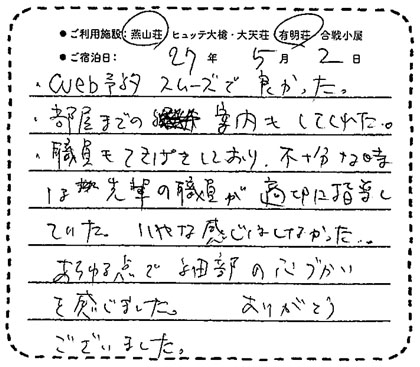 ●ご利用施設:燕山荘 ヒュッテ大槍・大天荘 有明荘 合戦小屋
●ご宿泊日: 27年 5月 2日
・Web予約 スムーズで 良かった。
・部屋までの 案内も してくれた。
・職員もてきぱきとしており、不十分な時
は 先輩の職員が 適切に指導し
ていた。いやな感じはしなかった。
あらゆる点で 細部の心づかい
を感じました。 ありがとう
ございました。